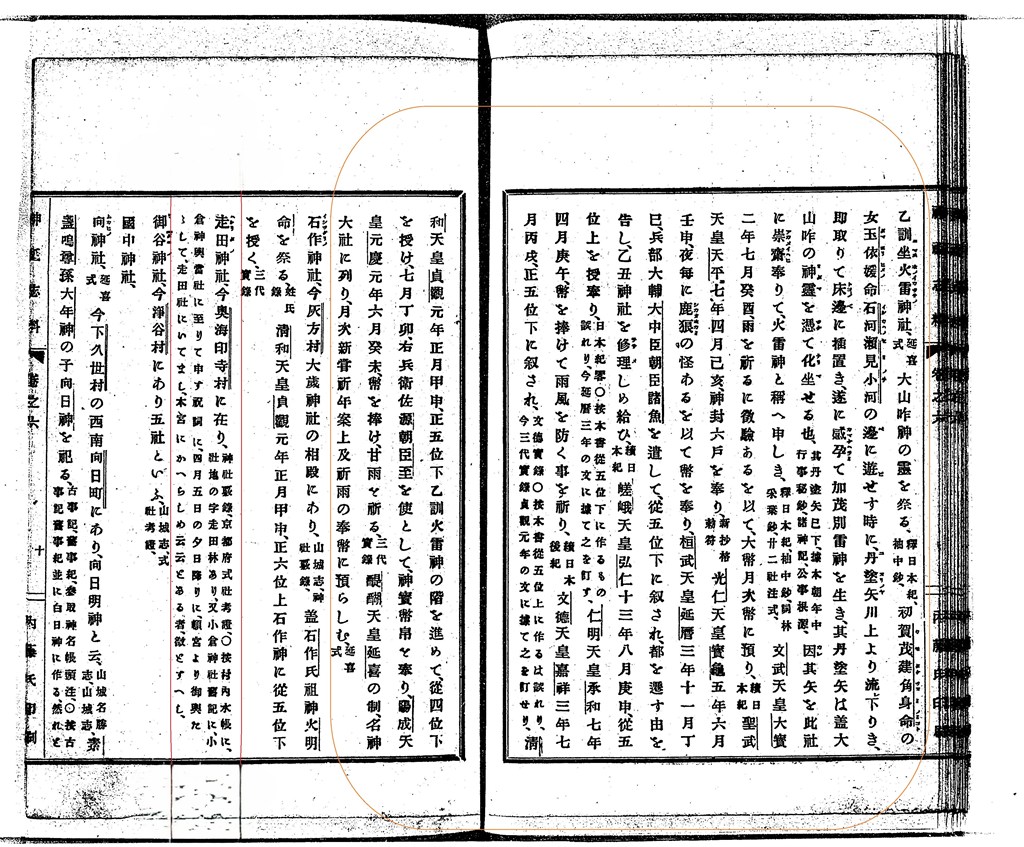 乙訓坐火雷神社、延喜式 大山咋神の靈を祭る、釋日本紀、袖中鈔、初賀茂建角身命の
女玉依媛命石河瀬見小河の邊に遊せす時に、丹塗矢川上より流下りき、
即取りて床邊に插置き、遂に感孕て加茂別雷神を生き、其丹塗矢は盖大
山咋の神靈を憑て化坐せる也、其丹塗矢已下、據本朝年中行事秘鈔、諸神記、公事根源、因其矢を此社
に崇齋奉りて、火雷神と稱へ申しき、釋日本紀袖中鈔、詞林采葉鈔廿二社注式、文武天皇大寳
二年七月癸酉、雨を祈るに徵驗あるを以て、大幣月次幣に預り、續日本紀 聖武
天皇天平七年四月己亥、神封六戸を奉り、新抄格勅符 光仁天皇寳龜五年六月
壬申、夜毎に鹿狼の怪あるを以て幣を奉り、桓武天皇延曆三年十一月丁
巳、兵部大輔大中臣朝臣諸魚を遣して、從五位下に叙され、都を遷す由を
告し、乙丑神社を修理しめ給ひ、續日本紀 嵯峨天皇弘仁十三年八月庚申、從五
位上を授奉り、日本紀畧〇按本書從五位下に作るもの誤れり、今延曆三年の文に據て之を訂す、仁明天皇承和七年
四月庚午、幣を捧けて雨風を防く事を祈り、續日本後紀 文德天皇嘉祥三年七
月丙戌、正五位下に叙され、文德實錄〇按本書從五位上に作るは誤れり、今三代實錄貞觀元年の文に據て之を訂せり、淸
和天皇貞觀元年正月甲申、正五位下乙訓火雷神の階を進めて、從四位下
を授け、七月丁卯右兵衛佐源朝臣至を使として、神寳幣帛を奉り、陽成天
皇元慶元年六月癸未幣を捧け、甘雨を祈る、三代實錄 醍醐天皇延喜の制、名神
大社に列り、月次新嘗祈年案上及祈雨の奉幣に預らしむ、延喜式
石作神社、今灰方村大歲神社の相殿にあり、山城志、神社覈錄、盖石作氏祖神火明
命を祭る、姓氏錄 淸和天皇貞觀元年正月甲申、正六位上石作神に從五位下
を授く、三代實錄
走田神社、今奥海印寺村に在り、神社覈錄、京都府式社考證〇按村内水帳に、社地の字走田林あり、又小倉神社舊記に、小
倉神輿當社に至りて申す祝詞に、四月五日の夕日降りに頓宮より御輿た
して、走田社にいてまし、本宮にかへらしめ云云とある者、徵とすへし、
御谷神社、今淨谷村にあり五社といふ、山城志、式社考證、
國中神社、
向神社、延喜式 今下久世村の西南向日町にあり、向日明神と云、山城名勝志、山城志、素
盞嗚尊孫大年神の子向日神を祀る、古事記、舊事紀、參取神名帳頭注、〇按古事記舊事紀並に白日神に作る、然れと